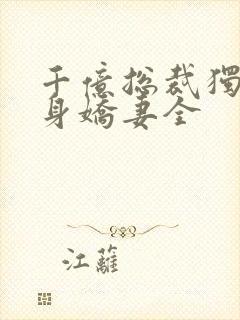 千億总裁獨
身嬌妻全
江蘺